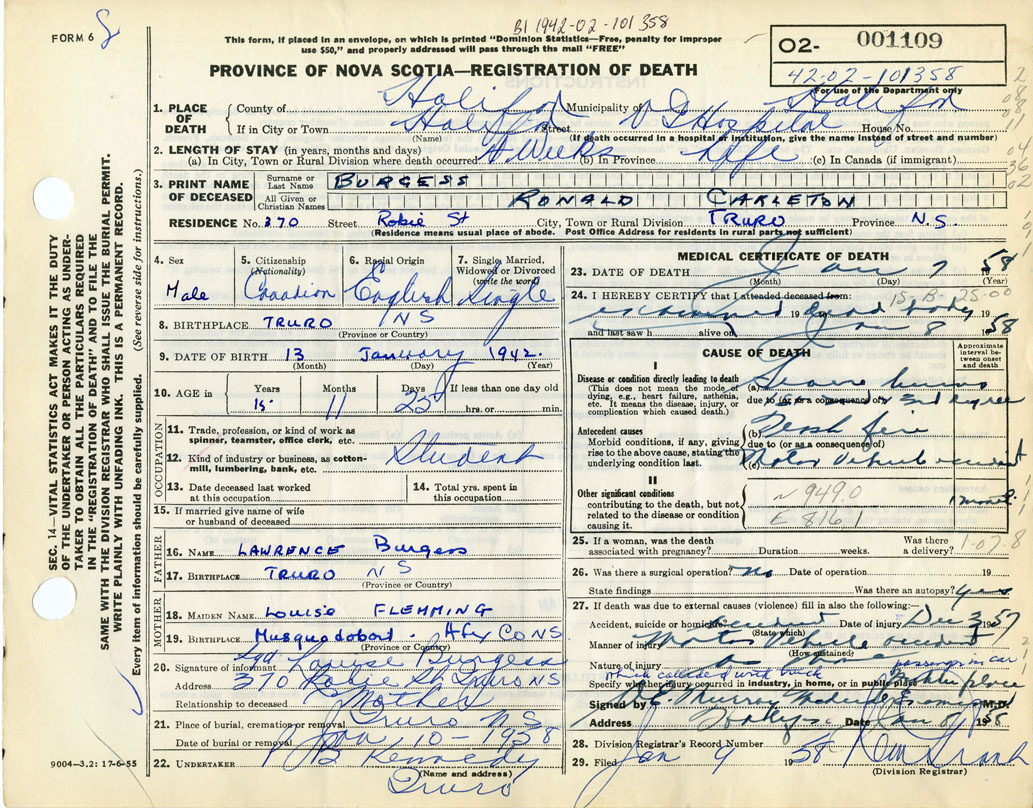 BI 1942-02-101358
FORM 6
This form, if placed in an envelope, on which is printed "Dominion Statistics—Free, penalty for improper
use $50," and properly addressed will pass through the mail "FREE"
02- 001109
42-02-101358
For use of the Department only
PROVINCE OF NOVA SCOTIA—REGISTRATION OF DEATH
1. PLACE OF DEATH { County of Halifax Municipality of Halifax
If in City or Town Halifax Street V G Hospital House No.
(Name) (If death occurred in a hospital or institution, give the name instead of street and number)
2. LENGTH OF STAY (in years, months and days)
(a) In City, Town or Rural Division where death occurred 4 Weeks (b) In Province Life (c) In Canada (if immigrant)
3. PRINT NAME OF DECEASED { Surname or Last Name BURGESS
All Given or Christian Names RONALD CARLETON
RESIDENCE No. 370 Street Robie St City, Town or Rural Division TRURO Province N.S
(Residence means usual place of abode. Post Office Address for residents in rural parts not sufficient)
4. Sex Male
5. Citizenship (Nationality) Canadian
6. Racial Origin English
7. Single, Married, Widowed or Divorced (write the word) Single
8. BIRTHPLACE TRURO NS
(Province or Country)
9. DATE OF BIRTH 13 January 1942.
(Month) (Day) (Year)
10. AGE in { Years 15 Months 11 Days 25 If less than one day old
hrs. or min.
OCCUPATION
11. Trade, profession, or kind of work as spinner, teamster, office clerk, etc.
12. Kind of industry or business, as cotton-mill, lumbering, bank, etc. Student
13. Date deceased last worked at this occupation
14. Total yrs. spent in this occupation
15. If married give name of wife or husband of deceased
FATHER
16. NAME LAWRENCE Burgess
17. BIRTHPLACE TRURO NS
(Province or Country)
MOTHER
18. MAIDEN NAME LOUISE FLEMMING
19. BIRTHPLACE Musquodoboit. Hfx CO NS
(Province or Country)
20. Signature of informant Sgd Louise Burgess
Address 370 Robie St Truro NS
Relationship to deceased Mother
21. Place of burial, cremation or removal Truro N.S
Date of burial or removal Jan 10-1958
22. UNDERTAKER Kennedy
(Name and address)
Truro
MEDICAL CERTIFICATE OF DEATH
23. DATE OF DEATH Jan 7 1958
(Month) (Day) (Year)
24. I HEREBY CERTIFY that I attended deceased from: 15-B-25-00
examined 19 dead body 19
and last saw h alive on Jan 8 1958
CAUSE OF DEATH
Approximate interval between onset and death
I
Disease or condition directly leading to death (a) Severe burns
(This does not mean the mode of dying, e.g., heart failure, asthenia, etc. It means the disease, injury, or complication which caused death.)
due to (or as a consequence of) 3rd degree
Antecedent causes (b) Flash fire
Morbid conditions, if any, giving rise to the above cause, stating the underlying condition last.
due to (or as a consequence of)
(c) Motor vehicle accident
II
Other significant conditions contributing to the death, but not related to the disease or condition causing it.
N 949.0
E 816 1
1 month
25. If a woman, was the death associated with pregnancy? Duration weeks. Was there a delivery?
1-07-8
26. Was there a surgical operation? No Date of operation 19
State findings Was there an autopsy? Yes
27. If death was due to external causes (violence) fill in also the following:—
Accident, suicide or homicide accident Date of injury Dec 3 1957
(State which)
Manner of injury Motor vehicle accident
(How sustained)
Nature of injury as above passenger in car
which collided with truck
Specify whether injury occurred in industry, in home, or in public place Public place
Signed by E. Murray Medical Examiner M.D.
Address Date Jan 1958
28. Division Registrar's Record Number
29. Filed Jan 9 1958
(Division Registrar)
SEC. 14—VITAL STATISTICS ACT MAKES IT THE DUTY
OF THE UNDERTAKER OR PERSON ACTING AS UNDER-
TAKER TO OBTAIN ALL THE PARTICULARS REQUIRED
IN THE "REGISTRATION OF DEATH" AND TO FILE THE
SAME WITH THE DIVISION REGISTRAR WHO SHALL ISSUE THE BURIAL PERMIT.
WRITE PLAINLY WITH UNFADING INK. THIS IS A PERMANENT RECORD.
Every item of information should be carefully supplied. (See reverse side for instructions.)
9004—3.2: 17-6-55